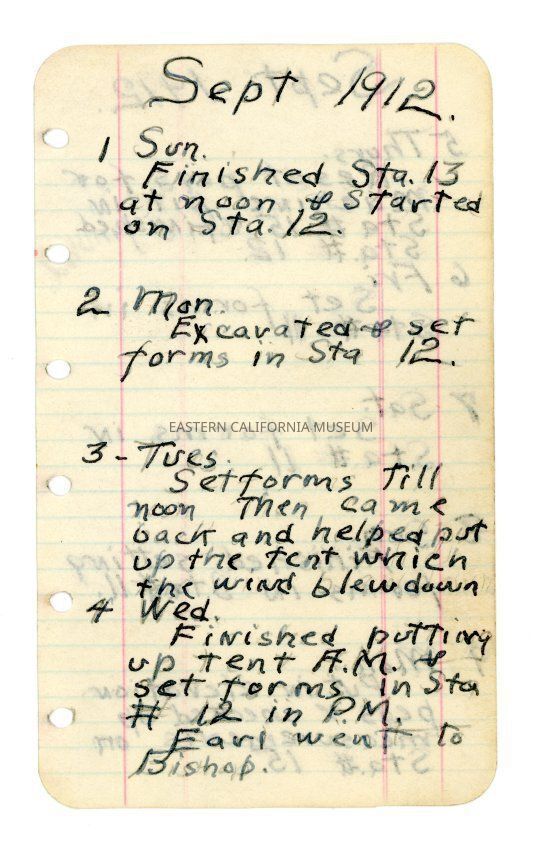 Sept 1912.
1 Sun.
Finished Sta. 13
at noon & Started
on Sta. 12.
2 Mon.
Excavated & set
forms in Sta 12.
EASTERN CALIFORNIA MUSEUM
3 - Tues.
Set forms Till
noon Then came
back and helped put
up the tent which
the wind blew down
4 Wed.
Finished putting
up tent A.M. &
set forms in Sta
# 12 in P.M.
Earl went to
Bishop.